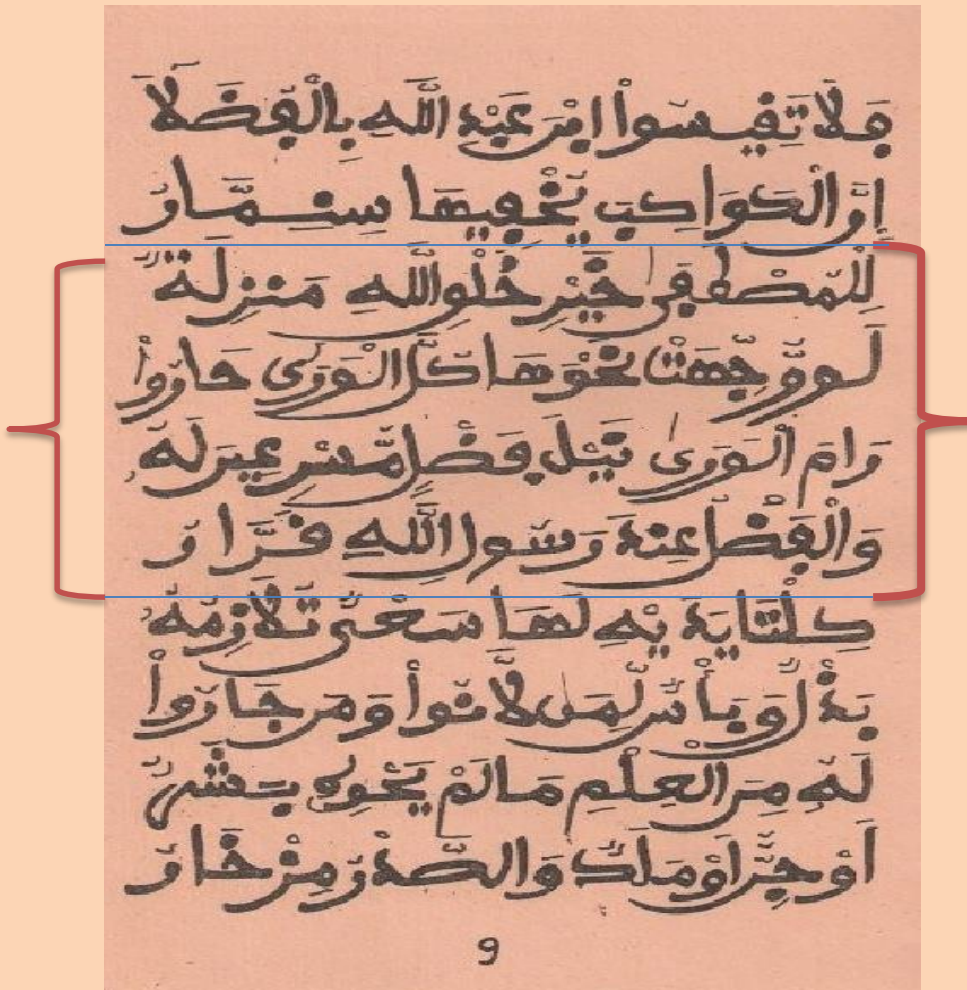 فَلَا تَقِيسُوا ابْنَ عَبْدِ اللَّهِ بِالْفُضَلَا
إِنَّ الْكَوَاكِبَ يُخْفِيهَا سِنِمَّارُ
لِلْمُصْطَفَى خَيْرِ خَلْقِ اللَّهِ مَنْزِلَةٌ
لَوْ وُجِّهَتْ نَحْوَهَا كُلُّ الْوَرَى حَارُوا
رَامَ الْوَرَى نَيْلَ فَضْلٍ مُسْرِعِينَ لَهُ
وَالْفَضْلُ عِنْدَ رَسُولِ اللَّهِ قَرَّارُ
كِلْتَا يَدَيْهِ لَهَا سَحٌّ تُلَازِمُهُ
بَذْلٌ وَبَأْسٌ لِمَنْ لَانُوا وَمَنْ جَارُوا
لَهُ مِنَ الْعِلْمِ مَا لَمْ يَحْوِهِ بَشَرٌ
أَوْ جِنٌّ أَوْ مَلَكٌ وَالصَّدْرُ
9